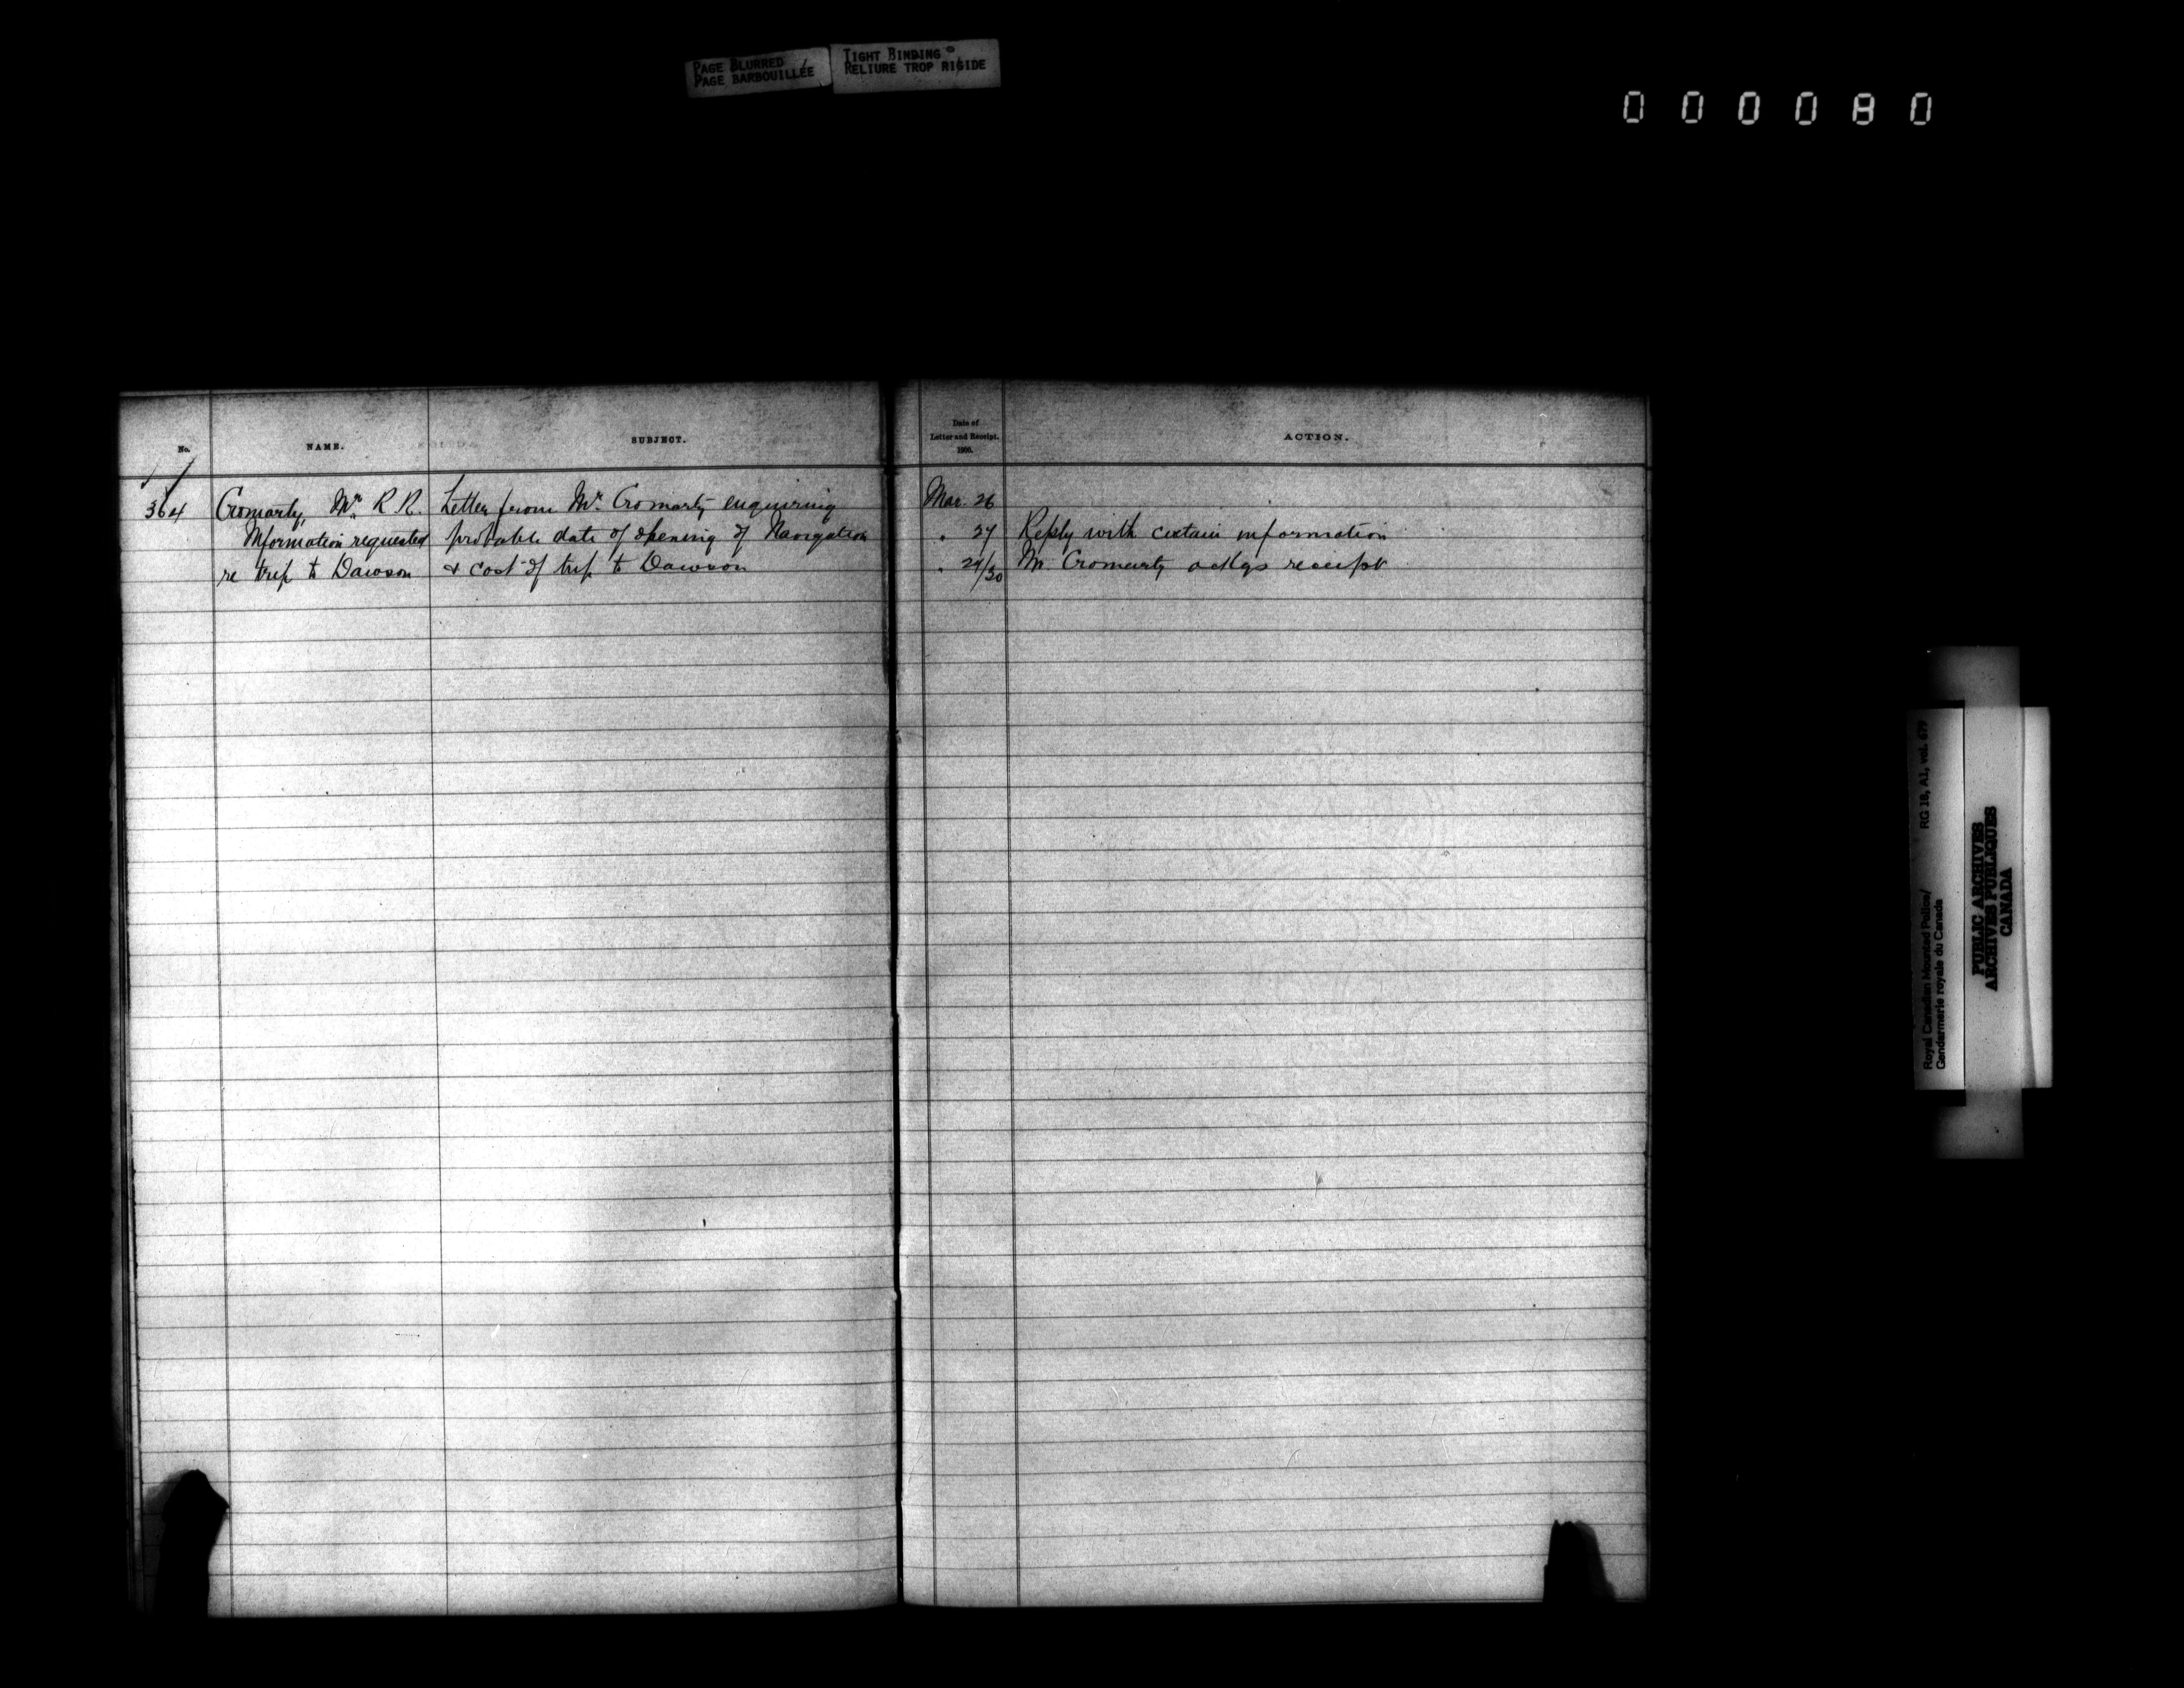 PAGE BLURRED
PAGE BARBOUILLÉE
TIGHT BINDING
RELIURE TROP RIGIDE
000080
No.
NAME.
SUBJECT.
Date of
Letter and Receipt.
1909.
ACTION.
364 Cromarty, Mr. R R. Letter from Mr. Cromarty enquiring Mar. 26
Information requested probable date of opening of Navigation " 27 Reply with certain information
re trip to Dawson & cost of trip to Dawson " 29/30 Mr Cromarty ackgs receipt
Royal Canadian Mounted Police/ RG 18, A1, vol. 679
Gendarmerie royale du Canada
PUBLIC ARCHIVES
ARCHIVES PUBLIQUES
CANADA